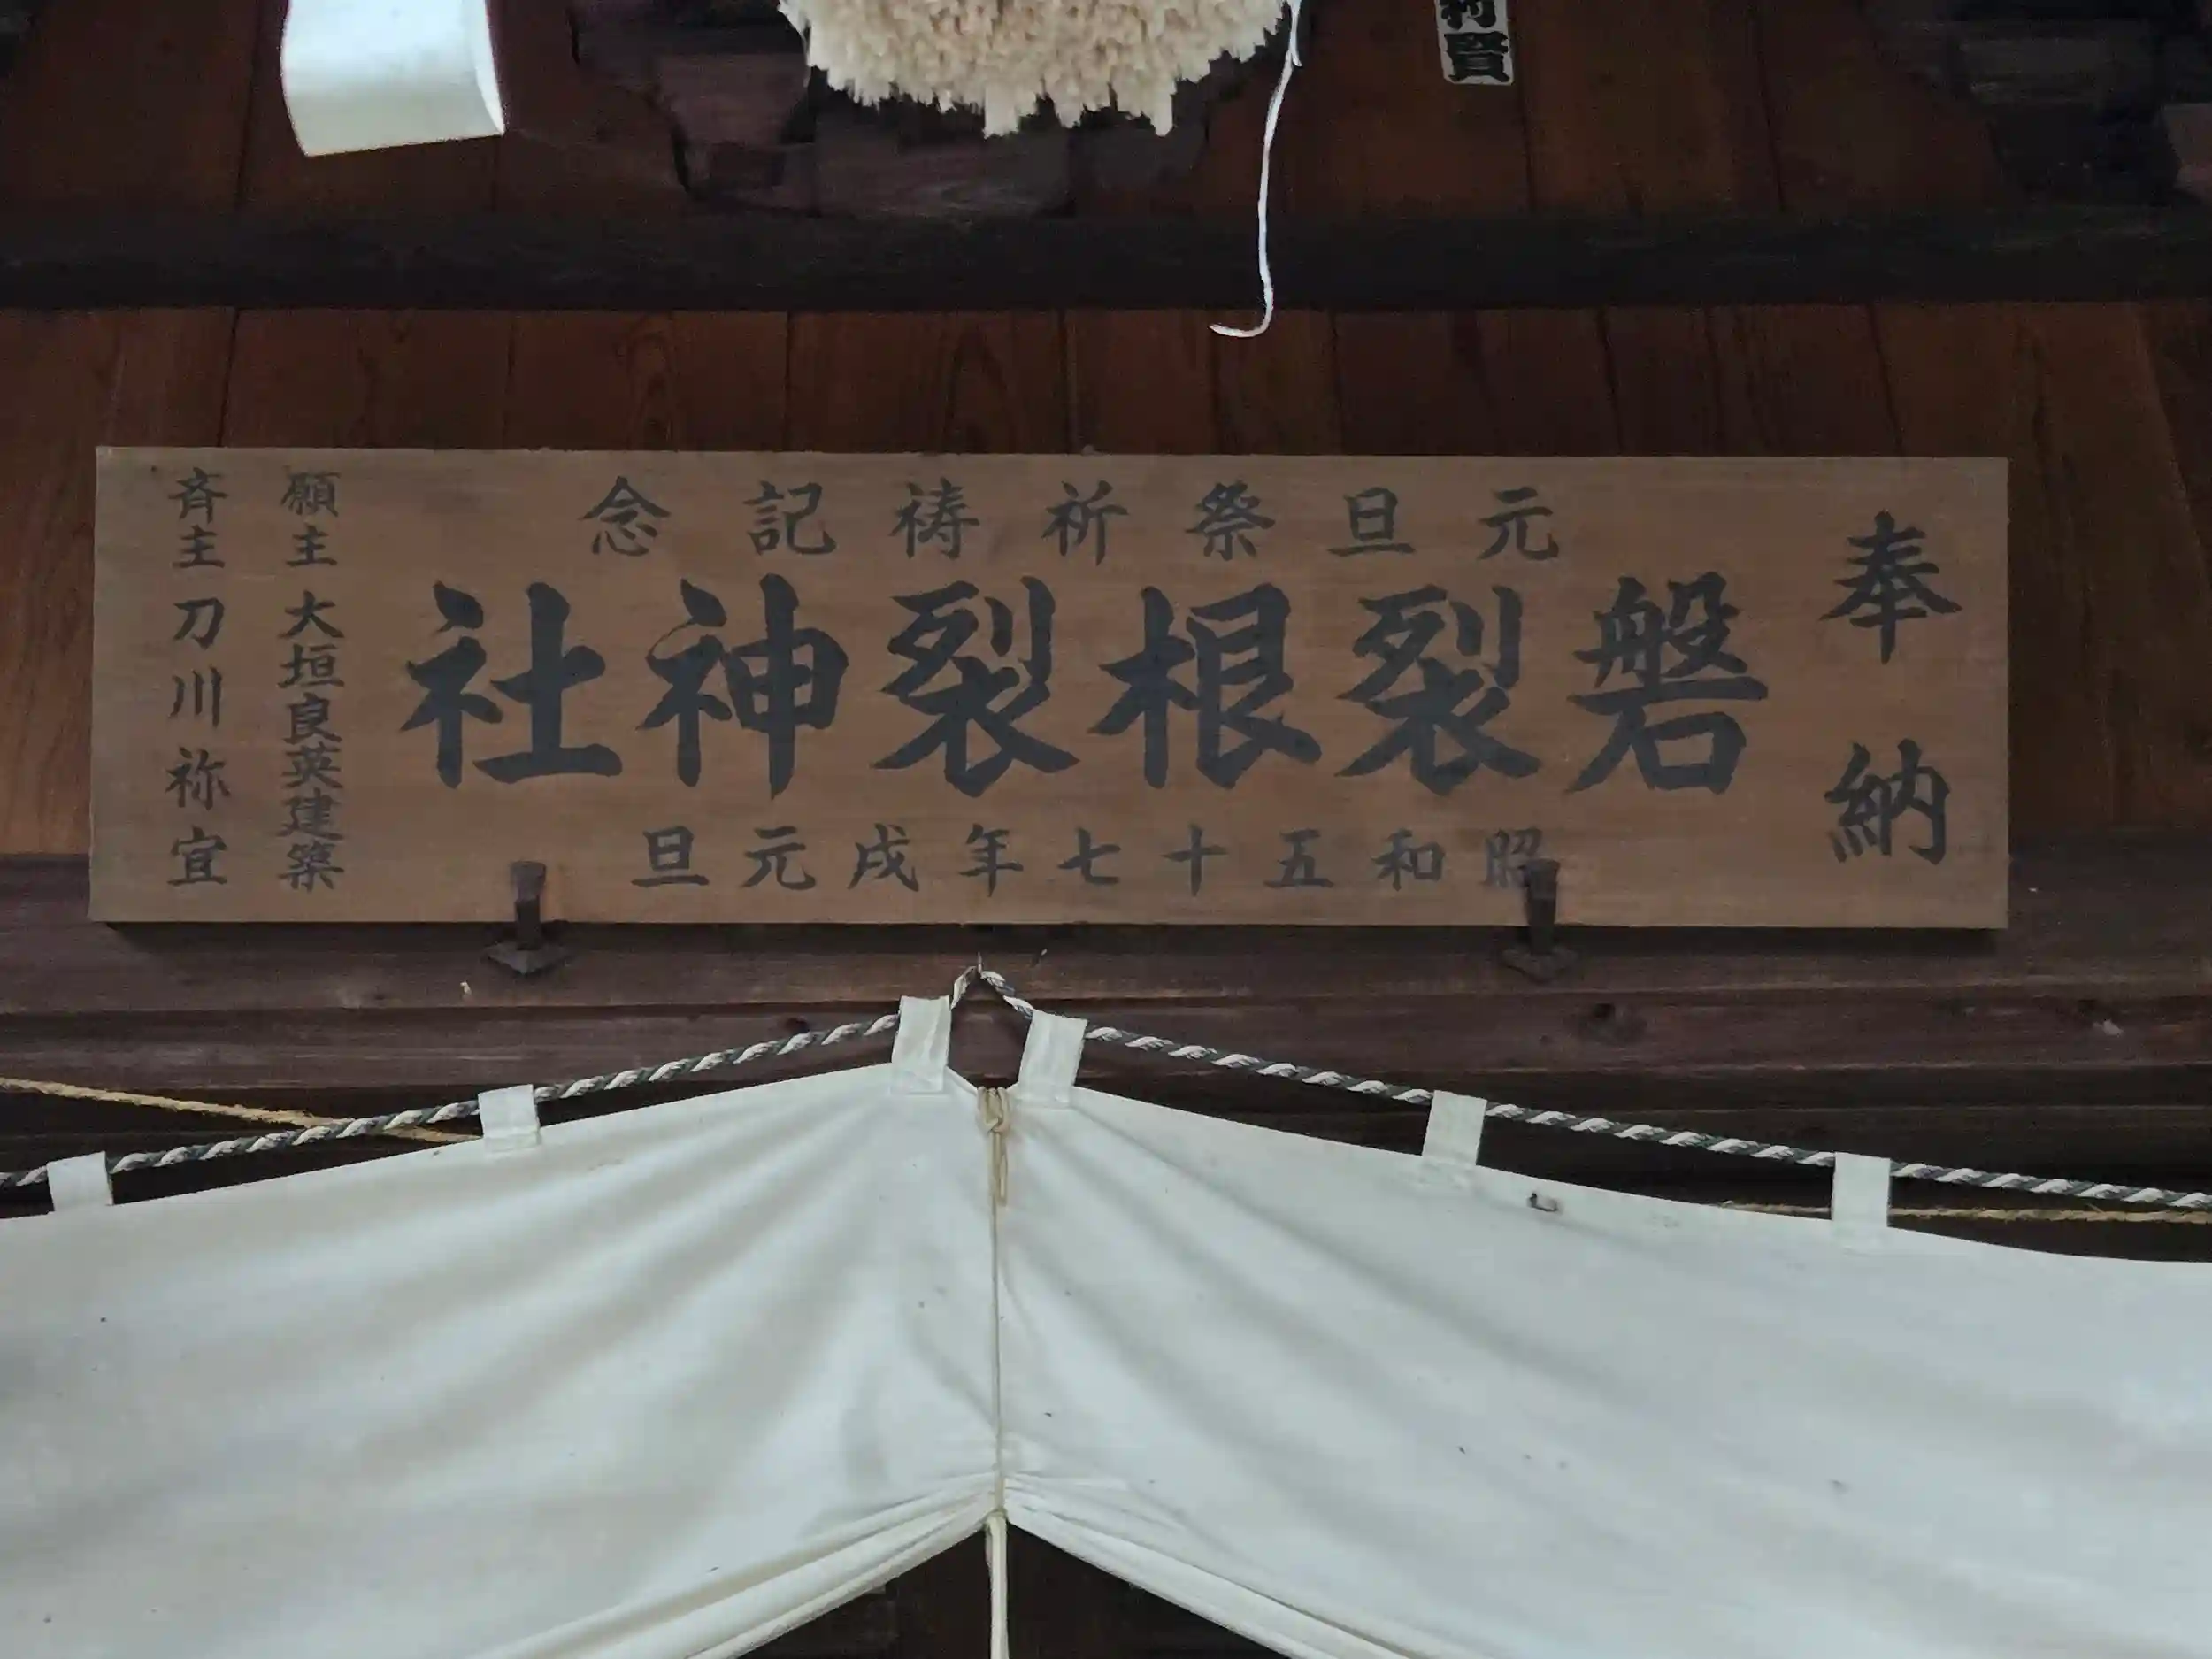 利賢
奉納
元旦祭祈祷記念
磐裂根裂神社
昭和五十七年戌元旦
願主 大垣良英建築
斉主 刀川祢宜